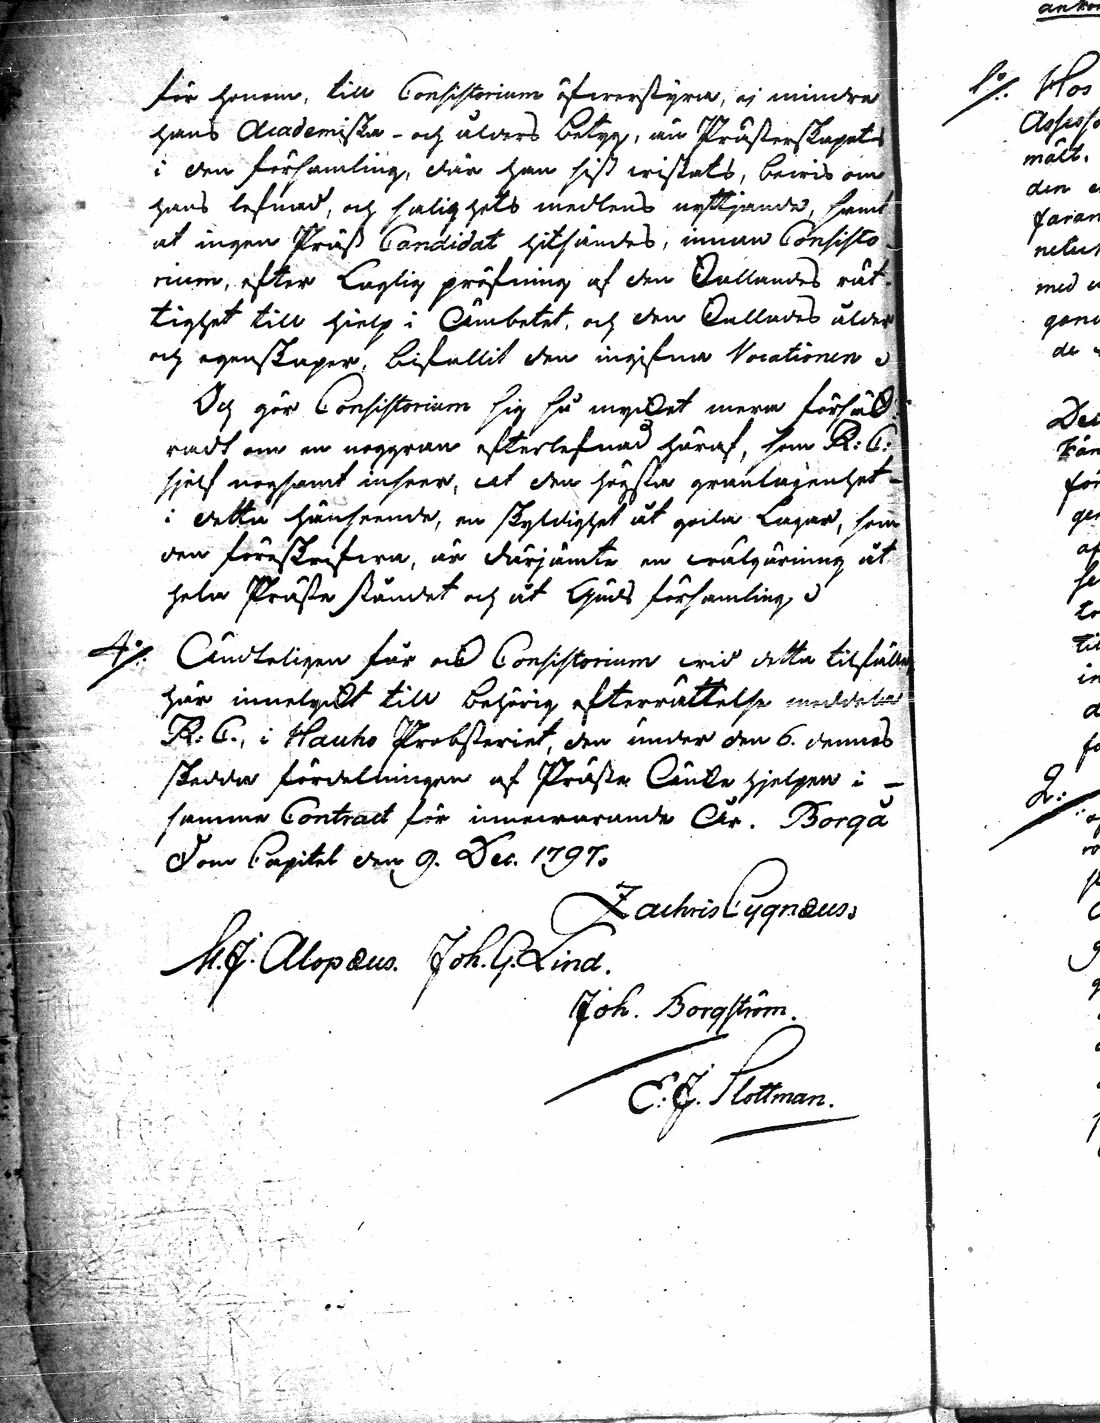 för honom, till Consistorium öfwerstyra, ej mindre
hans Academiska- och ålders betyg, än Prästerskapets
i den församling, där han sist wistats, bewis om
hans lefnad, och salighets medlens nyttjande, samt
at ingen Präst Candidat hitsändes, innan Consisto-
rium, efter Laglig pröfning af den Kallandes rät-
tighet till hjelp i Ämbetet, och den Kallades ålder
och egenskaper, bifallit den ingifna Vocationen
Och gör Consistorium sig så mycket mera försäk-
radt om en noggran efterlefnad häraf, som R: C:
sjelf nogsamt inseer, at den högsta granlagenhet
i detta hänseende, en skyldighet åt goda Lagar, som
den föreskrifwa, är därjämte en wälgärning åt
hela Präste ståndet och åt Guds församling
4:o/: Ändteligen får ock Consistorium wid detta tilfälle
här inneslyckt till behörig efterrättelse meddela
R: C., i Hauho Probsteriet, den under den 6. dennes
skedda fördelningen af Präste Änke hjelpen i
samma Contract för innewarande År. Borgå
Dom Capitel den 9. Dec. 1797.
Zachris Cygnæus.
M. J. Alopæus. Joh. G. Lind.
Joh. Borgström.
E. J. Slottman.
1:o/: Hos
Assesso
mält.
den
faran
med
de
för
af
in
2: